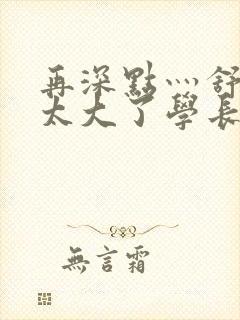 再深點灬舒
太大了學長
無言霜